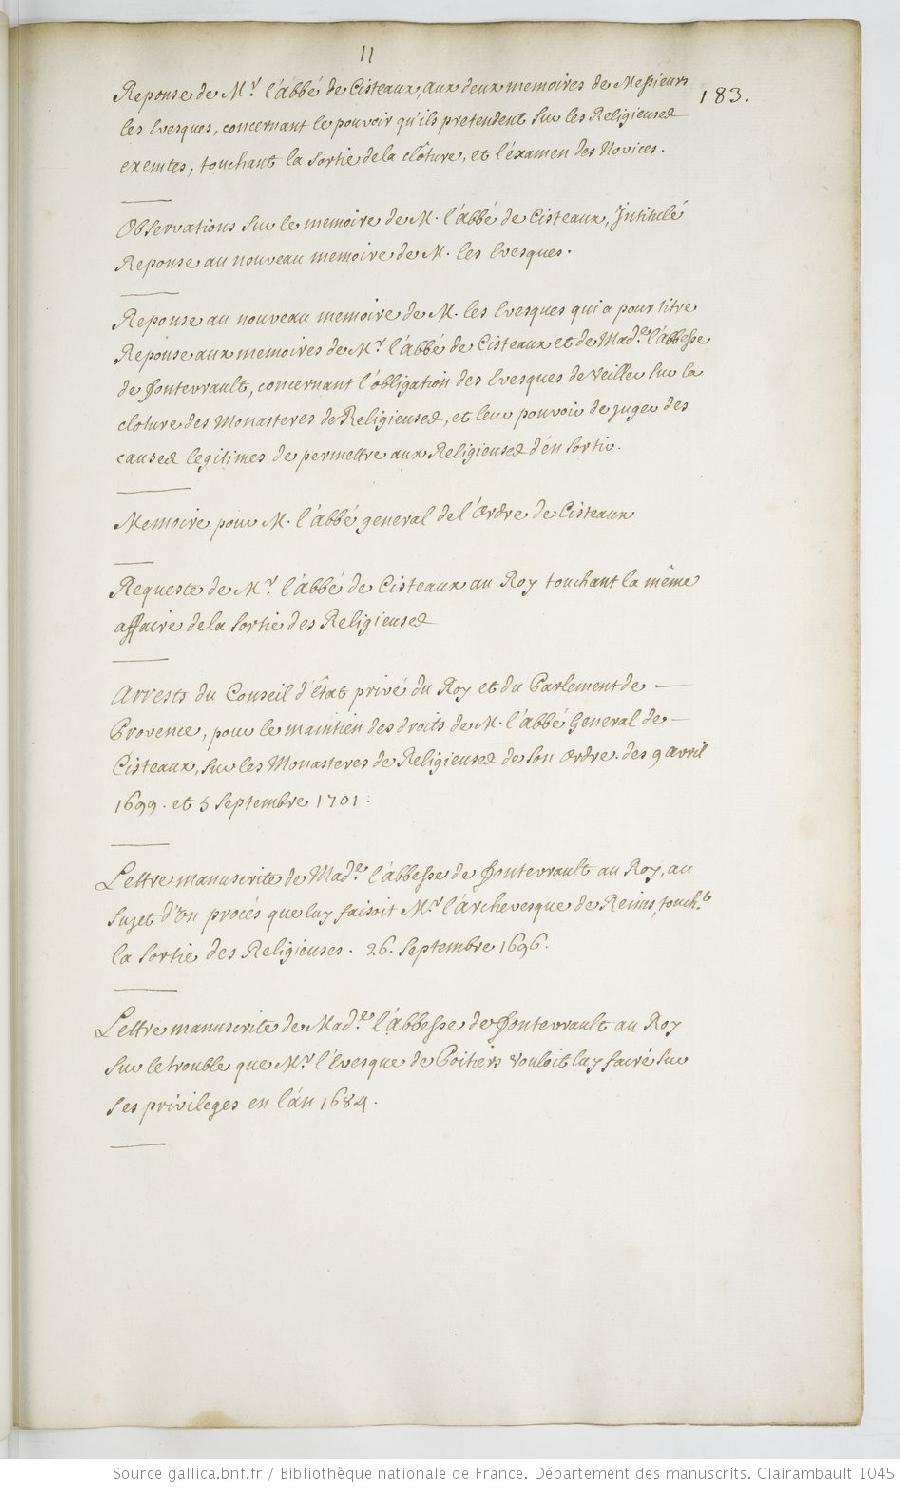 11
183.
Reponse de Mr. l'abbé de Cisteaux, aux deux memoires de Messieurs
les Evesques, concernant le pouvoir qu'ils pretendent sur les Religieuses
exemtes, touchant la sortie de la clôture, et l'éxamen des Novices.
Observations sur le memoire de M. l'abbé de Cisteaux, Jntitulé
Reponse au nouveau memoire de M. les Evesques.
Reponse au nouveau memoire de M. les Evesques qui a pour titre
Reponse aux memoires de Mr. l'abbé de Cisteaux et de Made. l'abbesse
de fontevrault, concernant l'obligation des Evesques de veiller sur la
cloture des Monasteres de Religieuses, et leur pouvoir de juger des
causes legitimes de permettre aux Religieuses d'en sortir.
Memoire pour M. l'abbé general de l'ordre de Cisteaux
Requeste de Mr. l'abbé de Cisteaux au Roy touchant la même
affaire de la sortie des Religieuses
Arrests du Conseil d'Etat privé du Roy et du Parlement de
Provence, pour le maintien des droits de M. l'abbé General de
Cisteaux, sur les Monasteres de Religieuses de son ordre. des 9 avril
1699. et 5 Septembre 1701.
Lettre manuscrite de Made. l'abbesse de fontevrault au Roy, au
sujet d'Un procés que luy faisoit Mr. l'archevesque de Reims, toucht.
la sortie des Religieuses. 26. Septembre 1696.
Lettre manuscrite de Made. l'abbesse de fontevrault au Roy
sur le trouble que Mr. l'Evesque de Poitiers vouloit luy faire sur
ses privileges en l'an 1684.
Source gallica.bnf.fr / Bibliothèque nationale de France. Département des manuscrits. Clairambault 1045